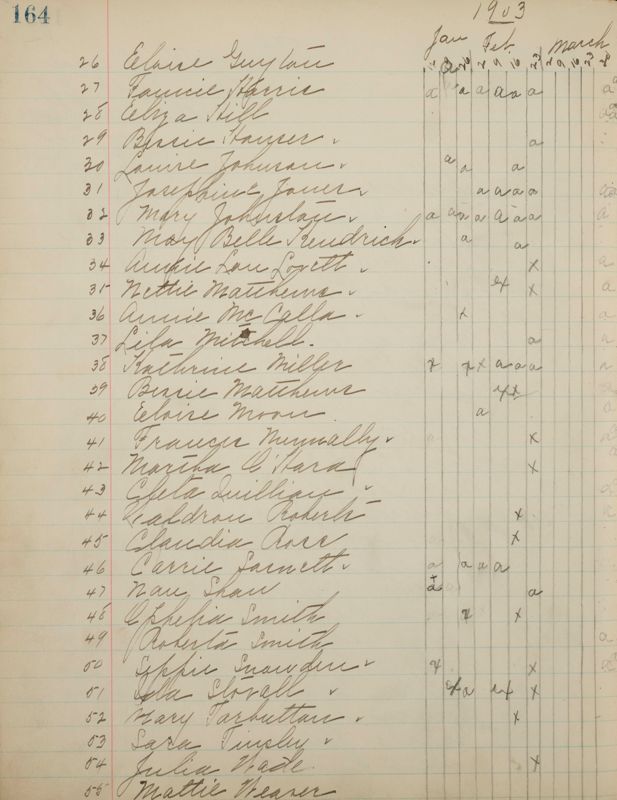 164
1903
Jan Feb. March
26 Eloise Guyton
27 Fannie Harris a a a a a a
28 Eliza Hill
29 Bessie Houser a
30 Louise Johnson a a a
31 Josephine Jones a a a a
32 Mary Johnston a a a a a a a
33 May Belle Kendrick a a
34 Annie Lou Lovett x
35 Nettie Matthews x x
36 Annie McCalla x
37 Lila Mitchell. a
38 Kathrine Miller x x x a a a
39 Bessie Matthews x x
40 Eloise Moon a
41 Frances Nunnally x
42 Martha O'Hara x
43 Cleta Quillian
44 Waldron Roberts x
45 Claudia Rose x
46 Carrie a a a a
47 Nan Shaw a
48 Ophelia Smith x x
49 Roberta Smith a
50 Snowden x x
51 Stovall x a x x
52 Mary Tarbutton x
53 Sara Tinsley
54 Julia Wade x
55 Mattie Weaver